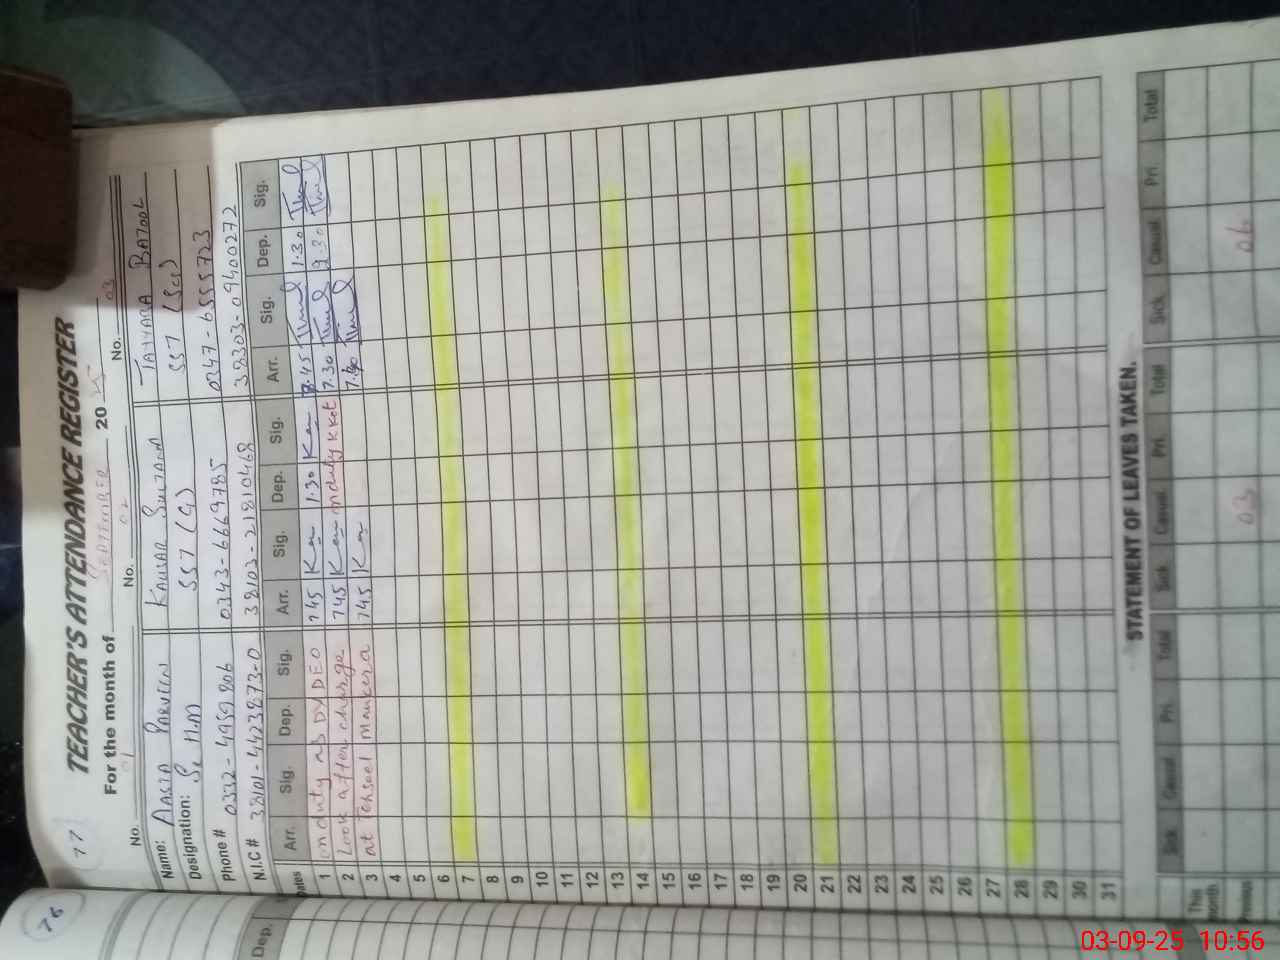 76
Dep.
77
TEACHER'S ATTENDANCE REGISTER
For the month of SEPTEMBER 20 25
No. 01 No. 02 No. 03
Name: AASIA PARVEEN KAUSAR SULTANA TAYYABA BATOOL
Designation: Sr H.M SST (G) SST (Sci)
Phone # 0332-4959806 0343-6669785 0347-6555723
N.I.C # 38101-4423873-0 38103-2181046-8 38303-0940027-2
Dates Arr. Sig. Dep. Sig. Arr. Sig. Dep. Sig. Arr. Sig. Dep. Sig.
1 on duty as DYDEO 745 1.30 7.45 1.30
2 Look after charge 745 on duty 7.30
3 at Tehseel Mankera 745
4
5
6
7
8
9
10
11
12
13
14
15
16
17
18
19
20
21
22
23
24
25
26
27
28
29
30
31
STATEMENT OF LEAVES TAKEN.
Sick Casual Pri. Total Sick Casual Pri. Total Sick Casual Pri. Total
This month
Previous 03 06
03-09-25 10:56